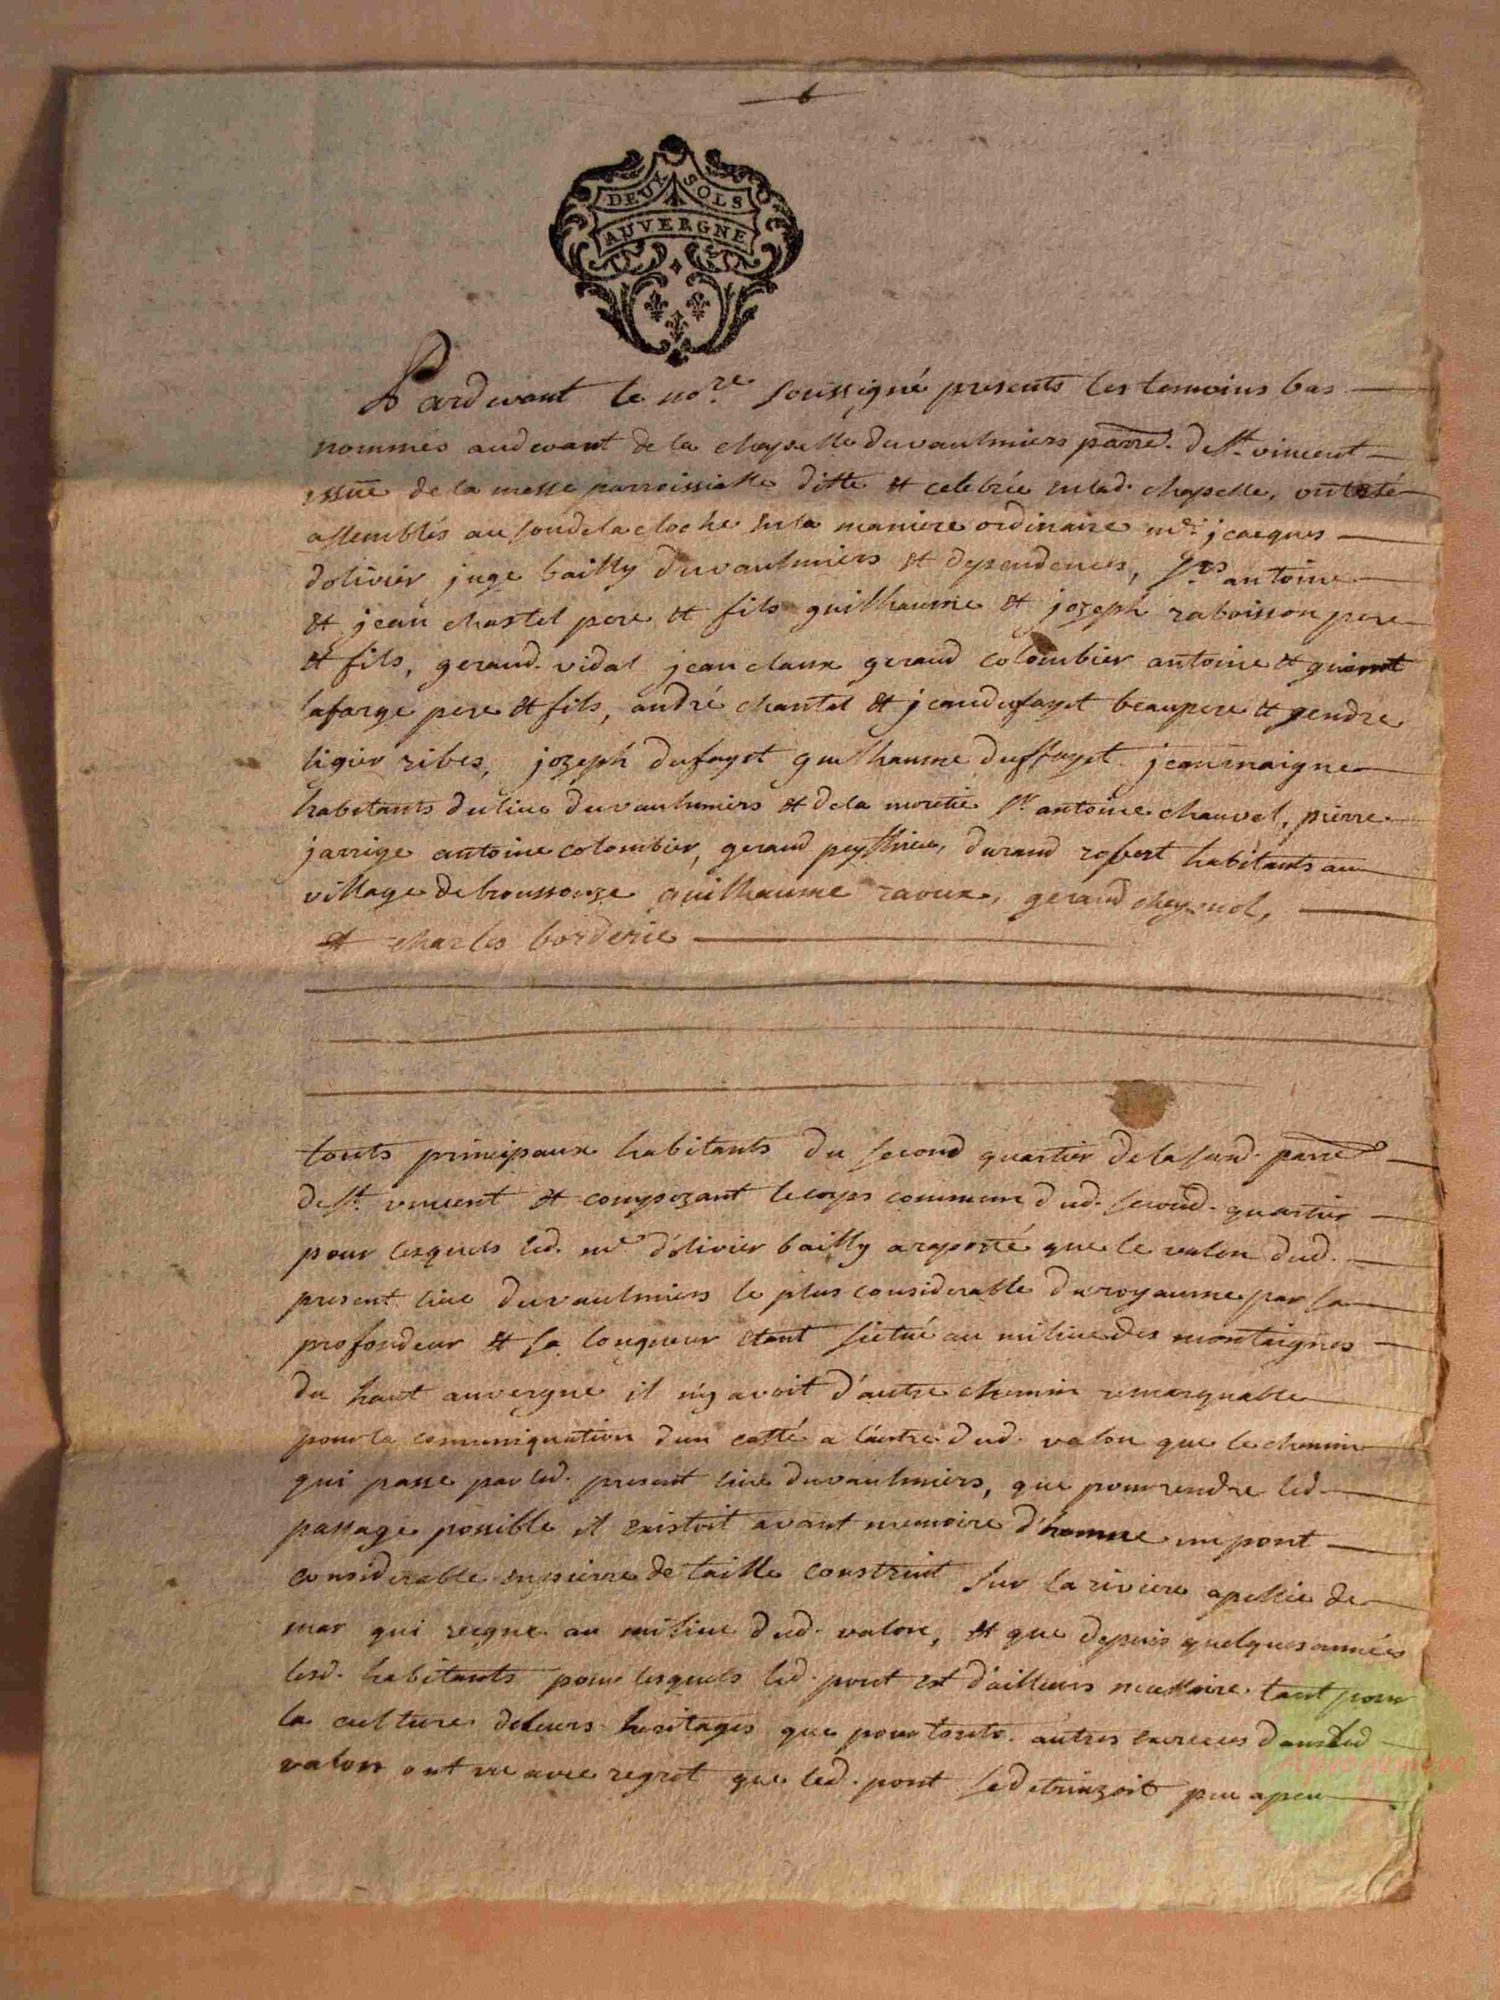 DEUX SOLS
AUVERGNE
Pardevant le nore. soussigné presents les temoins bas
nommés audevant de la chapelle duvaulmiers parre. de st. vincent
issüe de la messe parroissialle ditte et celebrée en lad. chapelle, ont été
assemblés au son de la cloche en la maniere ordinaire me. jcacques
dolivier juge bailly duvaulmiers et dependences, srs antoine
et jean chastel pere et fils guilhaume et jozeph raboisson pere
et fils, geraud vidal jean claux geraud colombier antoine et
lafarge pere et fils, andré chantal et jean dufayet beaupere et gendre
ligier ribes, jozeph dufayet guilhaume duffayet jean maigne
habitants du lieu duvaulmiers et de la moretie sr antoine chauvel, pierre
jarrige antoine colombier, geraud peythieu, durand robert habitants au
village de broussouze guilhaume raoux, geraud cheymol,
et charles borderie
touts principaux habitants du second quartier de la susd. parre
de st. vincent et compozant le corps commun dud. second quartier
pour lesquels led. me d'olivier bailly a raporté que le valon dud.
present lieu duvaulmiers le plus considerable du royaume par sa
profondeur et sa longueur etant sictué au milieu des montaignes
du haut auvergne il n'y avoit d'autre chemin remarquable
pour la comuniquation d'un cotté a lautre dud. valon que le chemin
qui passe par led. present lieu duvaulmiers, que pour rendre led.
passage possible il existoit avant memoire d'homme un pont
considerable en pierre de taille construit sur la riviere apellée de
mar qui regne au milieu dud. valon, et que depuis quelques années
lesd. habitants pour lesquels led. pont est d'ailleurs necessaire tant pour
la culture de leurs heritages que pour touts autres services dans led.
valon ont vu avec regret que led. pont se detruizoit peu a peu
Aprogemere